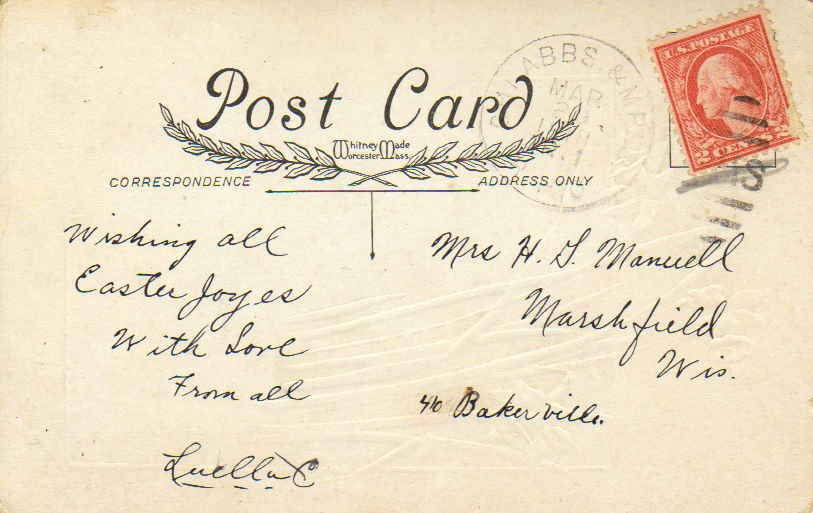 Post Card
Whitney Made
Worcester Mass.
CORRESPONDENCE
ADDRESS ONLY
ABBS & MP
MAR
U.S. POSTAGE
2 CENTS 2
Wishing all
Easter Joyes
With Love
From all
Luella C
Mrs H. G. Manuell
Marshfield
Wis.
Bakerville.